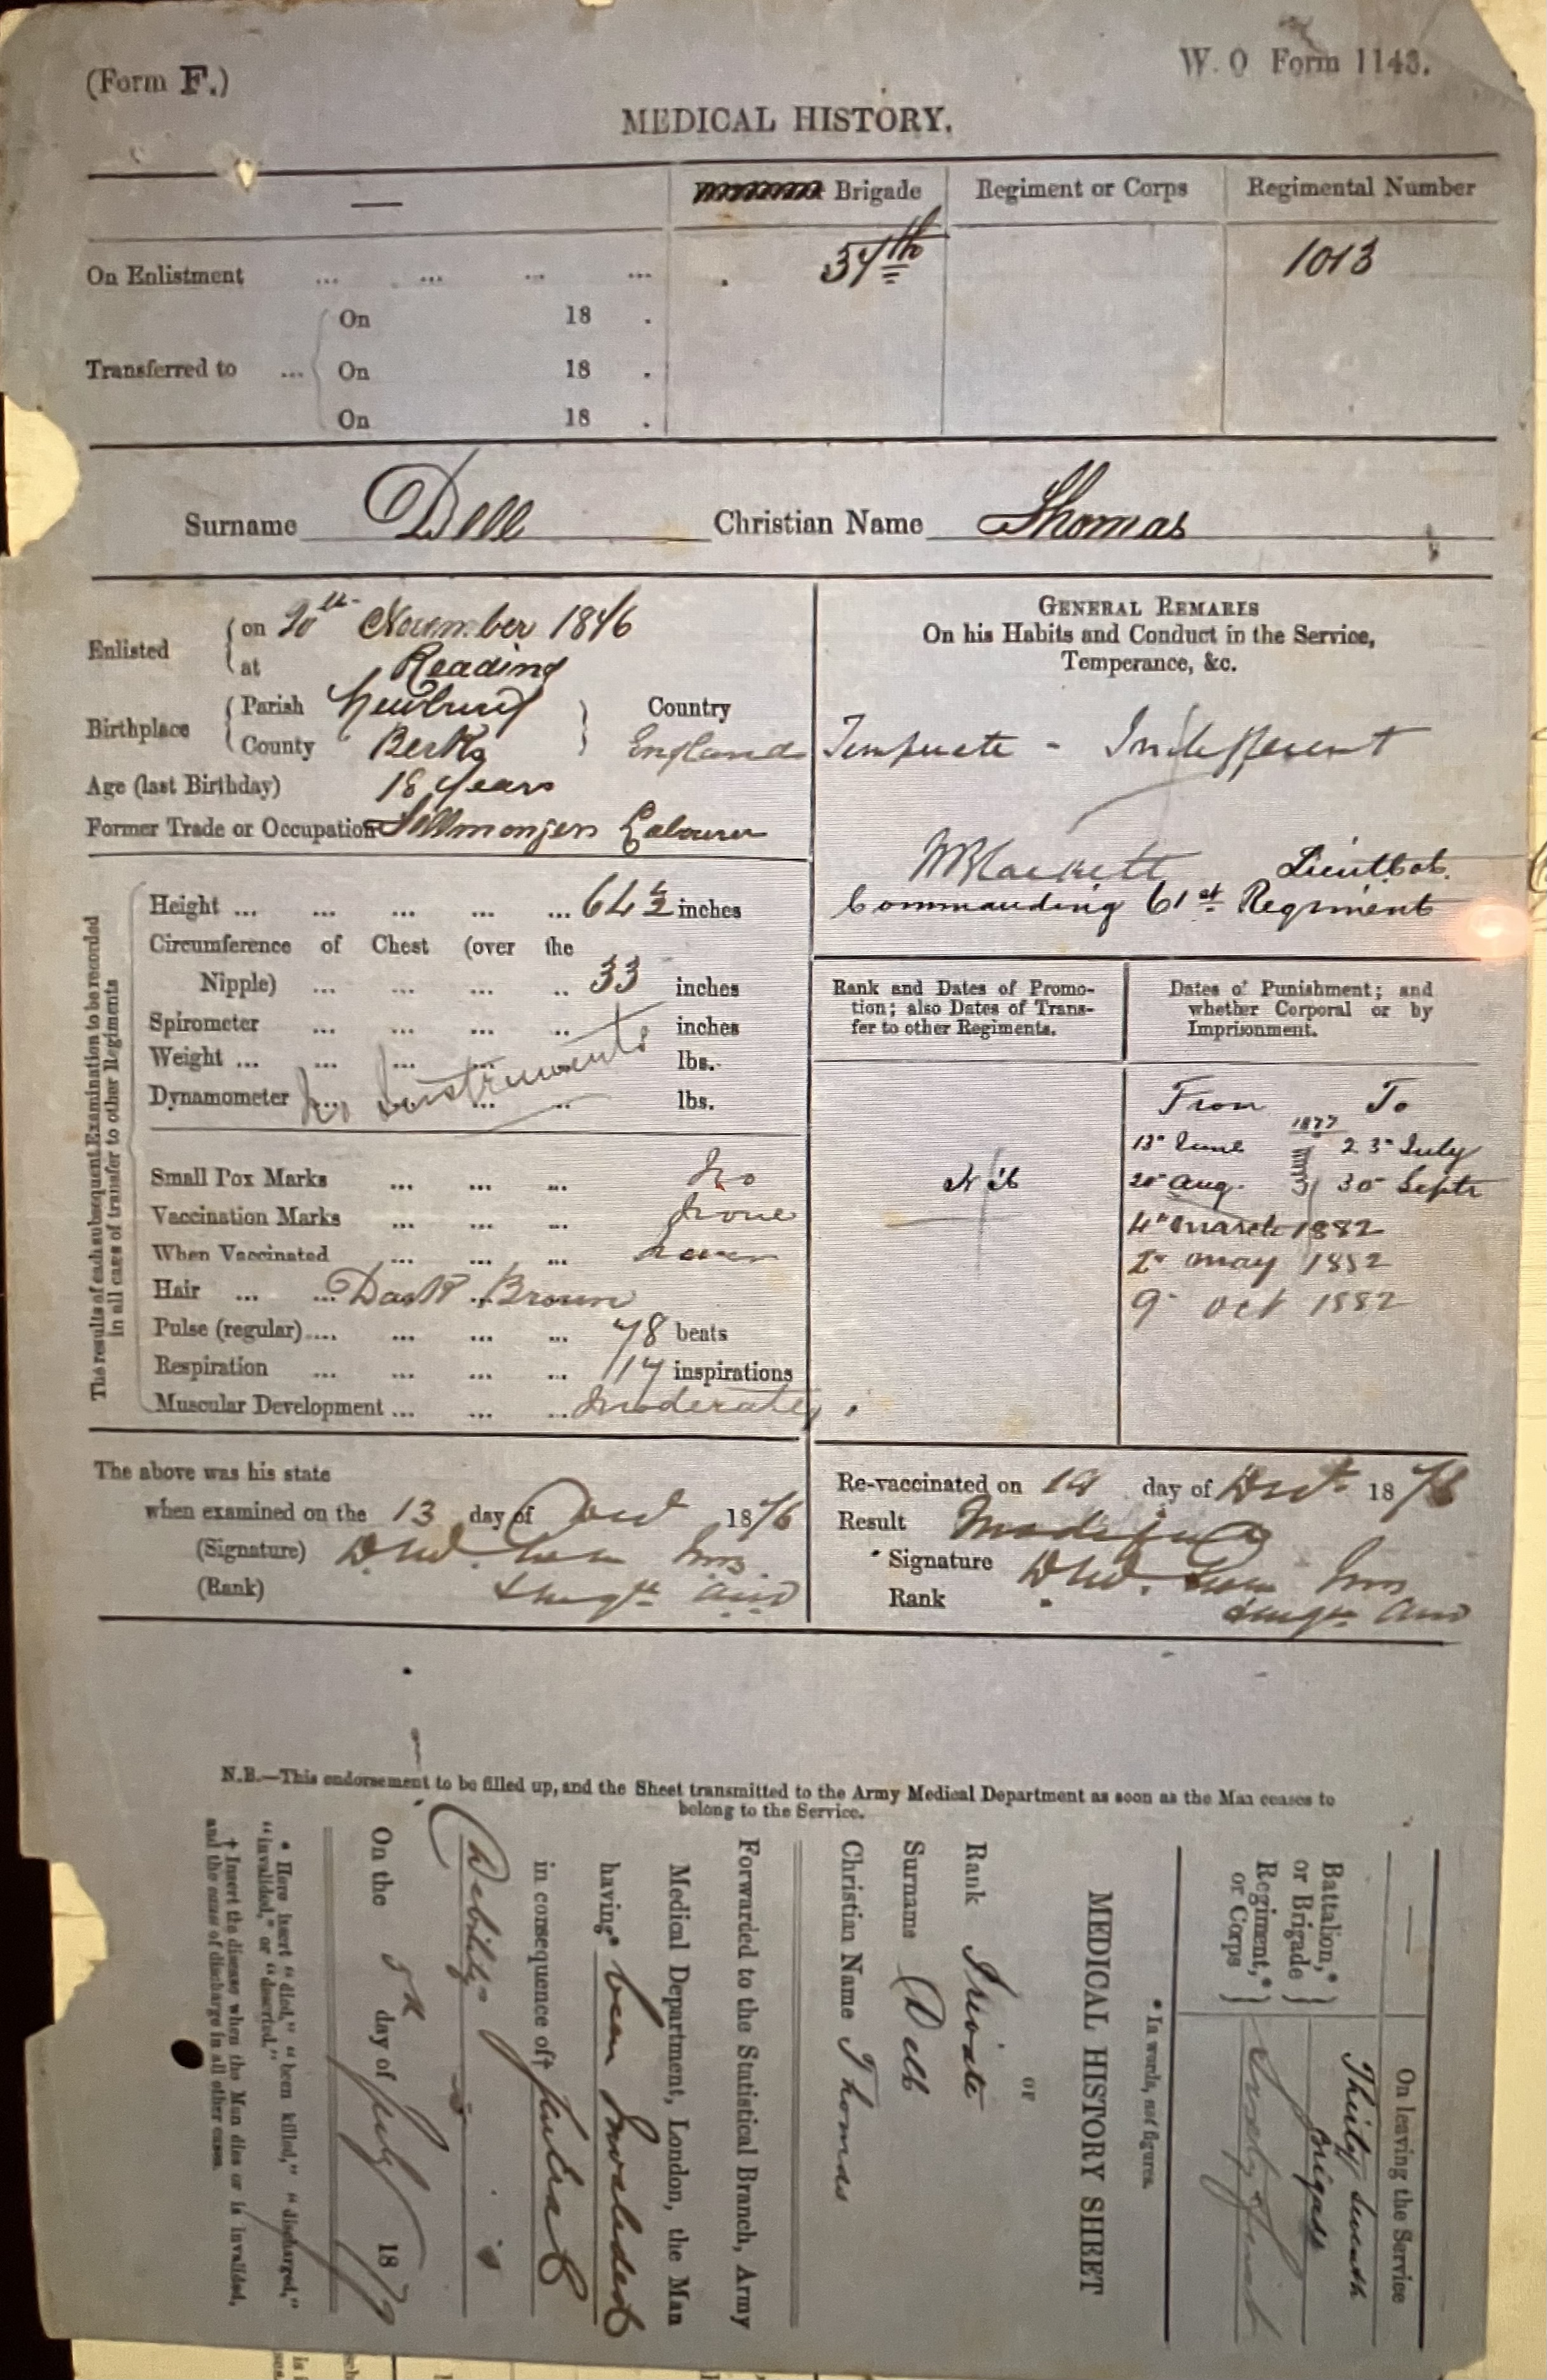 (Form F.)
W. O Form 1143.
MEDICAL HISTORY.
— Brigade Regiment or Corps Regimental Number
On Enlistment ... ... ... ... 37th 1013
On 18 .
Transferred to ... On 18 .
On 18 .
Surname Dell Christian Name Thomas
Enlisted
on 20th November 1876
at Reading
Birthplace
Parish Newbury
County Berks
Country
England
Age (last Birthday) 18 years
Former Trade or Occupation Fellmongers Labourer
The results of each subsequent Examination to be recorded
in all cases of transfer to other Regiments
Height ... ... ... ... ... 64½ inches
Circumference of Chest (over the
Nipple) ... ... ... .. 33 inches
Spirometer ... ... ... .. inches
Weight ... ... ... ... .. lbs.
Dynamometer ... ... ... .. lbs.
No Instruments
Small Pox Marks ... ... ... No
Vaccination Marks ... ... ... None
When Vaccinated ... ... ... never
Hair ... ... Dark Brown
Pulse (regular).... ... ... ... 78 beats
Respiration ... ... ... ... 17 inspirations
Muscular Development ... ... ... Moderate
The above was his state
when examined on the 13 day of 1876
(Signature)
(Rank)
GENERAL REMARKS
On his Habits and Conduct in the Service,
Temperance, &c.
Temperate - Indifferent
Lieut Col.
Commanding 61st Regiment
Rank and Dates of Promo-
tion; also Dates of Trans-
fer to other Regiments.
Nil
Dates of Punishment; and
whether Corporal or by
Imprisonment.
From To
1877
13" June 23" July
20" Aug. 30" Septr
4" March 1882
2" May 1882
9" Oct 1882
Re-vaccinated on day of 187
Result
Signature
Rank
N.B.—This endorsement to be filled up, and the Sheet transmitted to the Army Medical Department as soon as the Man ceases to
belong to the Service.
— On leaving the Service
Battalion,*
or Brigade
Thirty Seventh
Brigade
Regiment,*
or Corps
Sixty First
* In words, not figures.
MEDICAL HISTORY SHEET
OF
Rank Private
Surname Dell
Christian Name Thomas
Forwarded to the Statistical Branch, Army
Medical Department, London, the Man
having* been Invalided
in consequence of†
Debility
On the 5th day of July 1879
* Here insert "died," "been killed," "discharged,"
"invalided," or "deserted."
† Insert the disease when the Man dies or is invalided,
and the cause of discharge in all other cases.